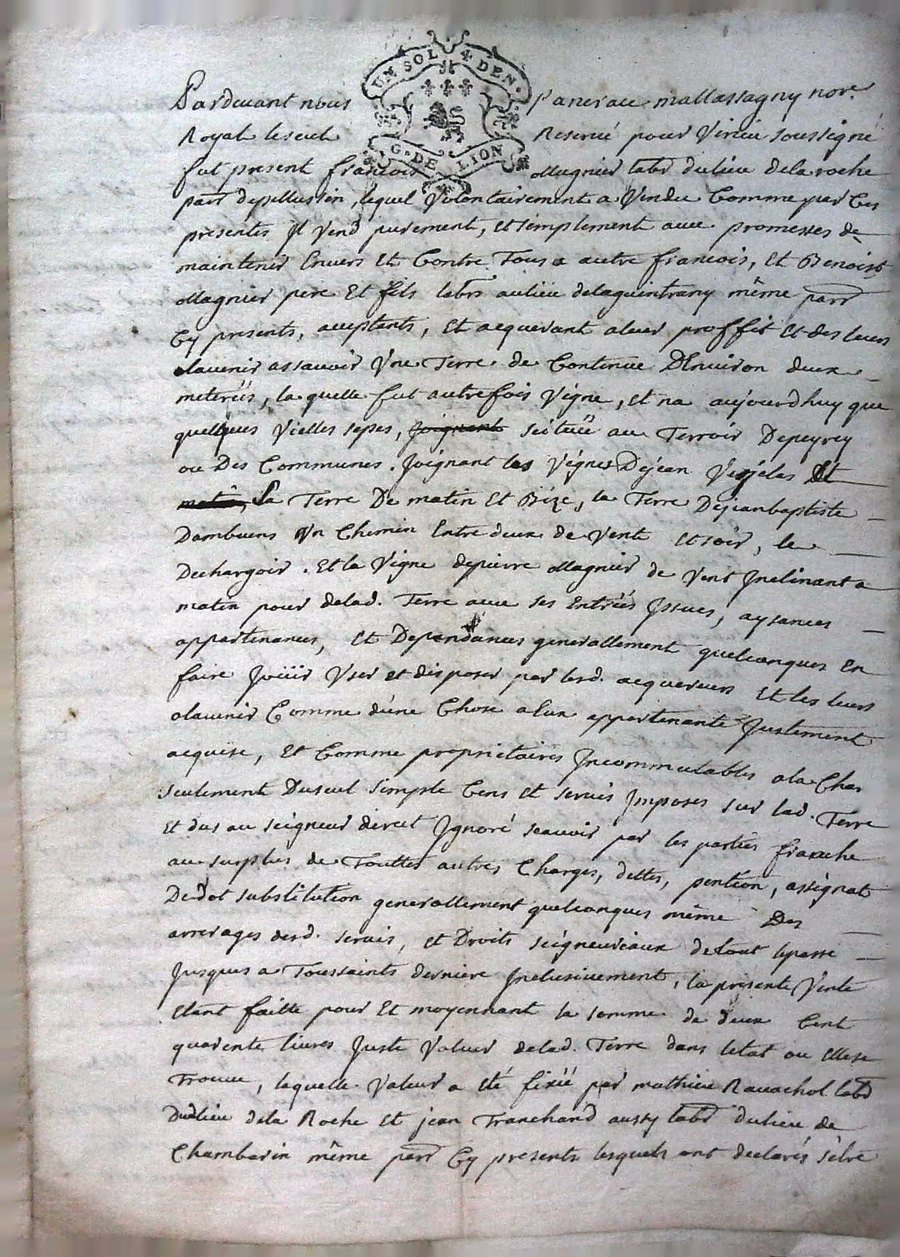 UN SOL 4 DEN.
G. DE LION
Pardevant nous Pancrace mallassagny nore.
Royal le seul Reservé pour Virieu soussigné
fut present francois Magnier labr du lieu de la roche
parr de pellussin, lequel Volontairement a Vendu Comme par Ces
presentes Il Vend purement, et simplement avec promesses de
maintenir Envers Et Contre Tous a autre francois, Et Benoist
Magnier pere Et fils labrs au lieu de la guintrany même parr
Cy presents, acceptants, Et acquerant a leur proffit Et des leurs
a lavenir assavoir Une Terre de Contenue D'Environ deux
meterées, la quelle fut autrefois Vigne, Et na aujourdhuy que
quelques Vielles seps, joignant scituée au Terroir Depeyrey
ou Des Communes. Joignant les Vignes De jean Et
La Terre De matin Et Bize, la Terre De jean baptiste
Dambuens Un Chemin Entre deux de Vent Et soir, le
Dechargoir. Et la Vigne de pierre Magnier de Vent Inclinant a
matin pour delad. Terre avec ses Entrées Issues, aysances
appartenances, Et Dependances generallement quelconques En
faire Jouir User et disposer par lesd. acquereurs Et les leurs
a lavenir Comme d'une Chose a Eux appartenante Justement
acquise, Et Comme proprietaires Incommutables a la Char
seulement Du seul simple Cens Et servis Imposes sur lad. Terre
Et dus au seigneur direct Ignoré scavoir par les parties franche
au surplus de Touttes autres Charges, dettes, pention, assignat
De dot substitution generallement quelconques même Des
arrerages desd. servis, et Droits seigneuriaux de tout le passé
Jusques a Toussaints derniere Inclusivement, la presente Vente
Etant faitte pour Et moyennant la somme de deux Cent
quarente livres Juste Valeur delad. Terre dans letat ou Elle se
Trouve, laquelle Valeur a été fixée par mathieu Ravachol labr
Du lieu de la Roche Et jean Tranchand aussy labr du lieu de
Chambarin même parr Cy presents lesquels ont declarés s'être